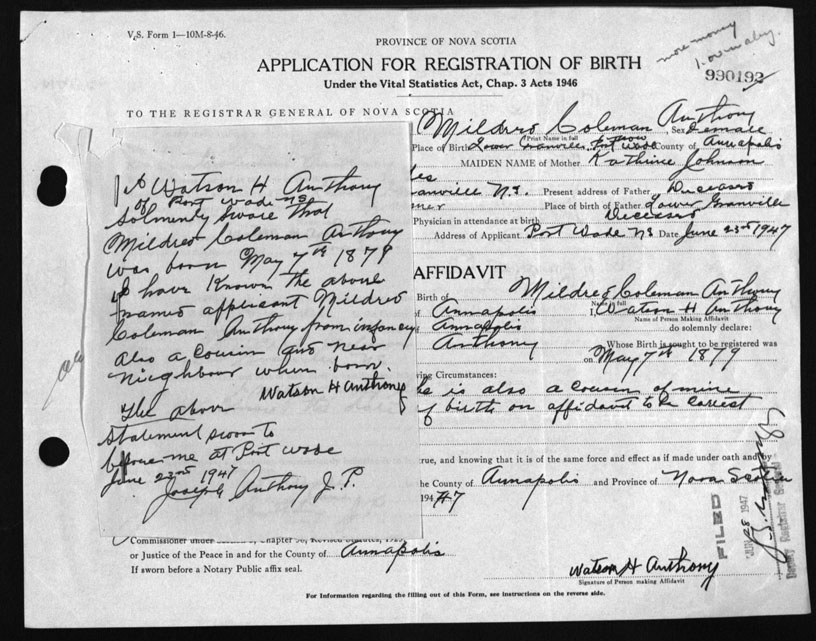 V.S. Form 1—10M-8-46.
PROVINCE OF NOVA SCOTIA
more money
APPLICATION FOR REGISTRATION OF BIRTH
990192
Under the Vital Statistics Act, Chap. 3 Acts 1946
TO THE REGISTRAR GENERAL OF NOVA SCOTIA
Mildred Coleman Anthony Sex Female
Print Name in full
Place of Birth Lower Granville now Port Wade County of Annapolis
MAIDEN NAME of Mother Kathrine Johnson
ranville N.S. Present address of Father Deceased
mer Place of birth of Father Lower Granville
Physician in attendance at birth Deceased
Address of Applicant Port Wade NS Date June 23rd 1947
I Watson H Anthony
of Port Wade NS
Solmendy swore that
Mildred Coleman Anthony
was born May 7th 1879
I have Known the above
named applicant Mildred
Coleman Anthony from infancy
also a Cousin and near
nieghbour when born.
Watson H Anthony
The above
statement sworn to
before me at Port Wade
June 23rd 1947
Joseph Anthony J.P.
AFFIDAVIT
Birth of Mildred Coleman Anthony
Name in full
of Annapolis I Watson H Anthony
Name of Person Making Affidavit
Annapolis do solemnly declare:
Anthony Whose Birth is sought to be registered was
on May 7th 1879
wing Circumstances:
is also a cousin of mine
of birth on affidavit to be correct
rue, and knowing that it is of the same force and effect as if made under oath and by
the County of Annapolis and Province of Nova Scotia
1947
FILED
JUN 28 1947
Deputy Registrar General
Commissioner under Chapter Revised Statutes,
or Justice of the Peace in and for the County of Annapolis
If sworn before a Notary Public affix seal.
Watson H Anthony
Signature of Person making Affidavit
For Information regarding the filling out of this Form, see instructions on the reverse side.